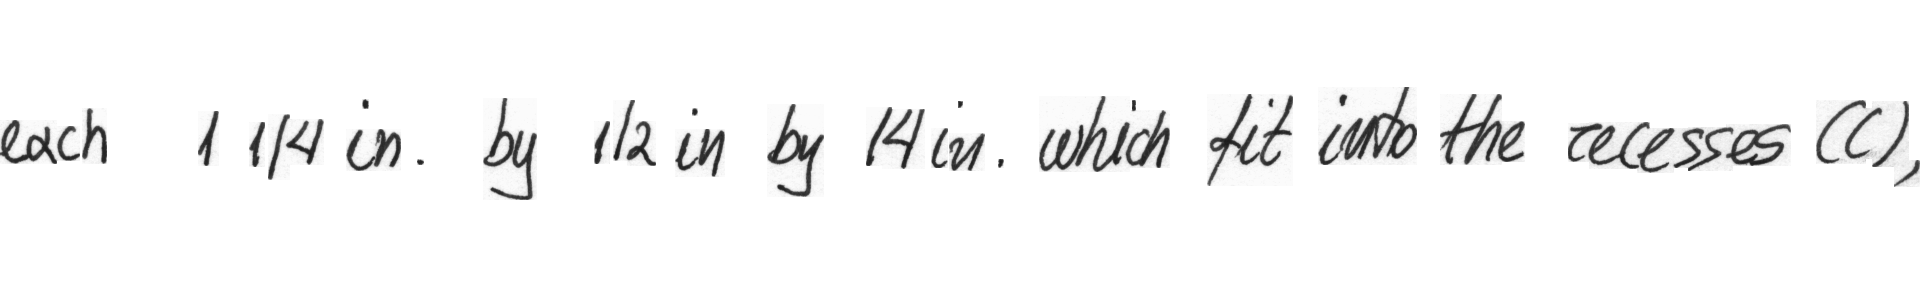 each 1 1/4 in. by 1/2 in by 14 in. which fit into the recesses (C),